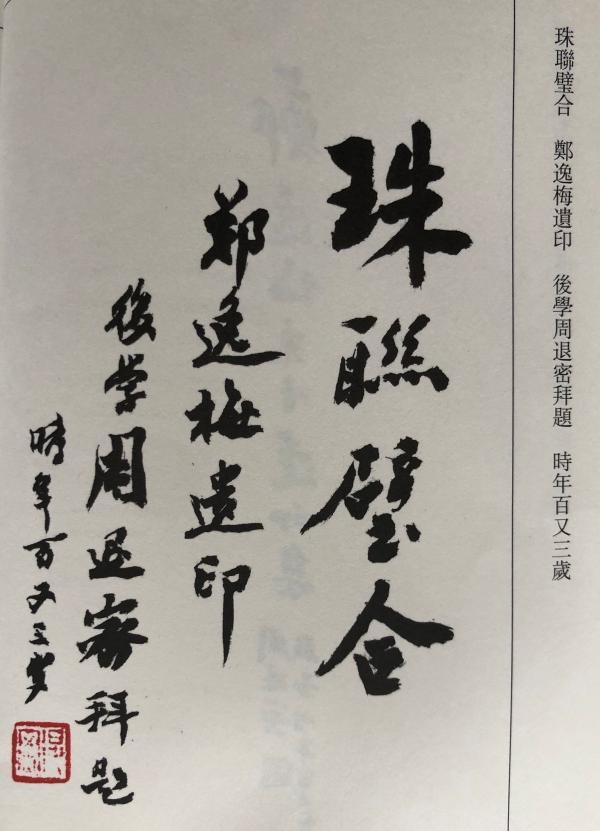 珠聯璧合　鄭逸梅遺印　後學周退密拜題　時年百又三歲
珠聯璧合
鄭逸梅遺印
後学周退密拜題
時年百又三歲